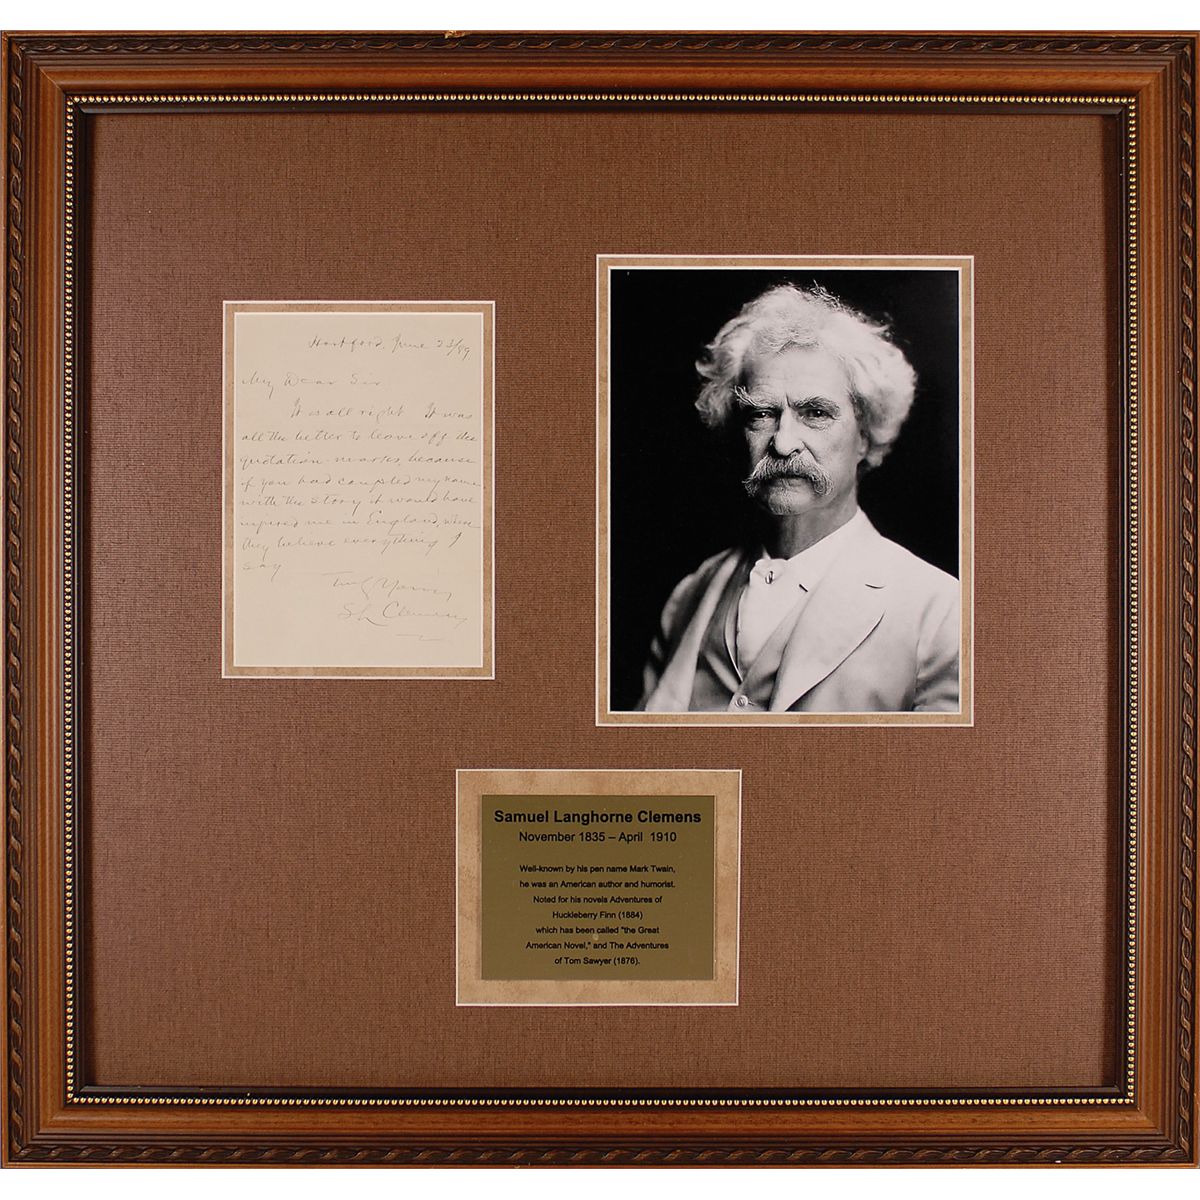 Hartford, June 23/89
My Dear Sir
It is all right. It was
all the better to leave off the
quotation-marks, because
if you had coupled my name
with the story it would have
injured me in England, where
they believe everything I
say
Truly Yours
SL Clemens
Samuel Langhorne Clemens
November 1835 – April 1910
Well-known by his pen name Mark Twain,
he was an American author and humorist.
Noted for his novels Adventures of
Huckleberry Finn (1884)
which has been called "the Great
American Novel," and The Adventures
of Tom Sawyer (1876).